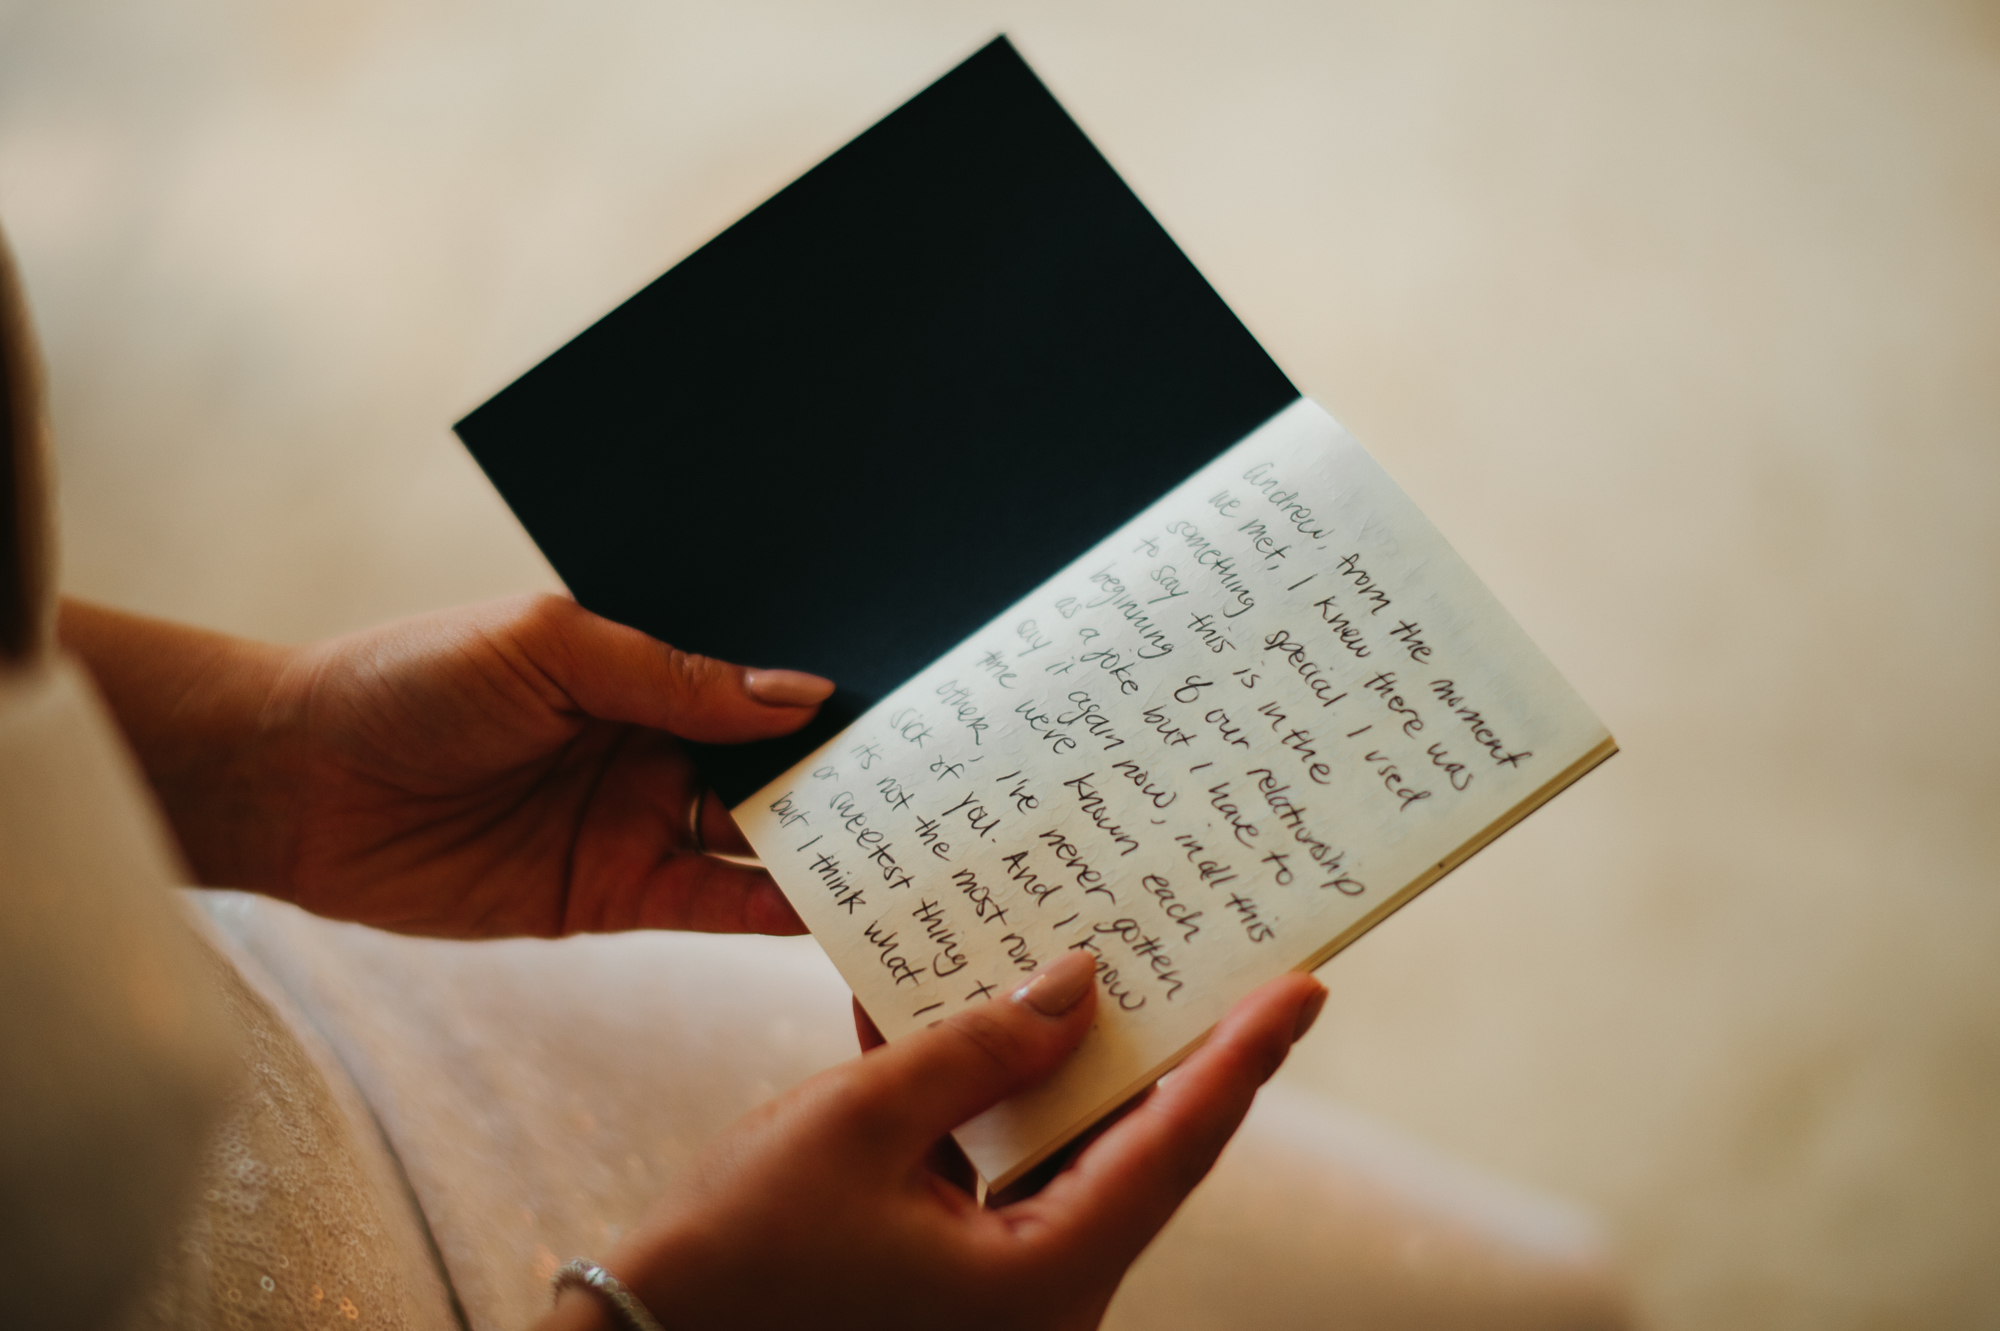 andrew, from the moment
we met, I knew there was
something special. I used
to say this is in the
beginning of our relationship
as a joke but I have to
say it again now, in all this
time we've known each
other, I've never gotten
sick of you. And I know
it's not the most
or sweetest thing
but I think what I